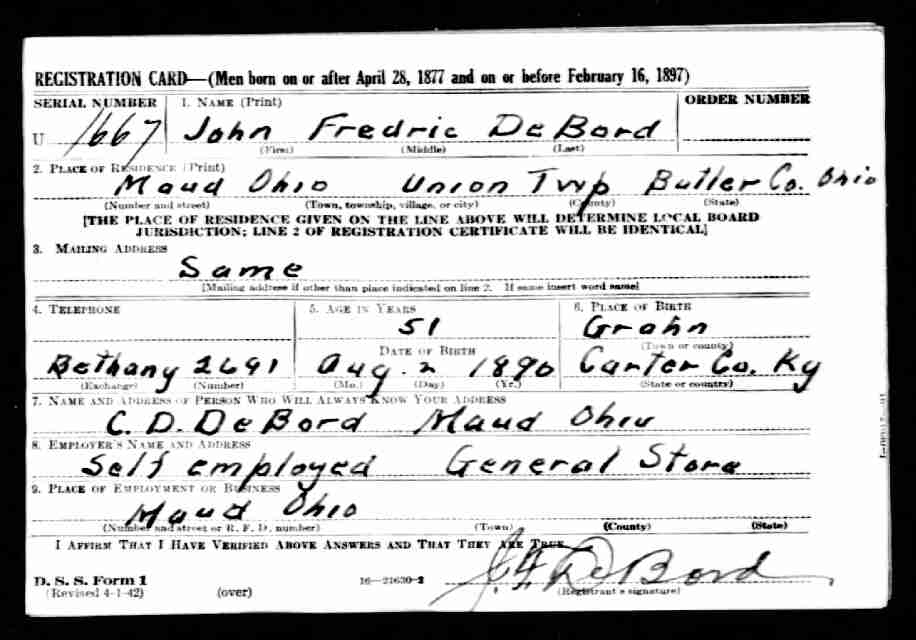 REGISTRATION CARD—(Men born on or after April 28, 1877 and on or before February 16, 1897)
SERIAL NUMBER 1. NAME (Print) ORDER NUMBER
U 1667 John Fredric DeBord
(First) (Middle) (Last)
2. PLACE OF RESIDENCE (Print)
Maud Ohio Union Twp Butler Co. Ohio
(Number and street) (Town, township, village, or city) (County) (State)
[THE PLACE OF RESIDENCE GIVEN ON THE LINE ABOVE WILL DETERMINE LOCAL BOARD
JURISDICTION; LINE 2 OF REGISTRATION CERTIFICATE WILL BE IDENTICAL]
3. MAILING ADDRESS
Same
[Mailing address if other than place indicated on line 2. If same insert word same]
4. TELEPHONE 5. AGE IN YEARS 6. PLACE OF BIRTH
51 Grahn
DATE OF BIRTH (Town or county)
Bethany 2691 Aug. 2 1890 Carter Co. Ky
(Exchange) (Number) (Mo.) (Day) (Yr.) (State or country)
7. NAME AND ADDRESS OF PERSON WHO WILL ALWAYS KNOW YOUR ADDRESS
C. D. DeBord Maud Ohio
8. EMPLOYER'S NAME AND ADDRESS
Self employed General Store
9. PLACE OF EMPLOYMENT OR BUSINESS
Maud Ohio
(Number and street or R. F. D. number) (Town) (County) (State)
I AFFIRM THAT I HAVE VERIFIED ABOVE ANSWERS AND THAT THEY ARE TRUE.
J. F. DeBord
D. S. S. Form 1 16—21630-2
(Revised 4-1-42) (over) (Registrant's signature)